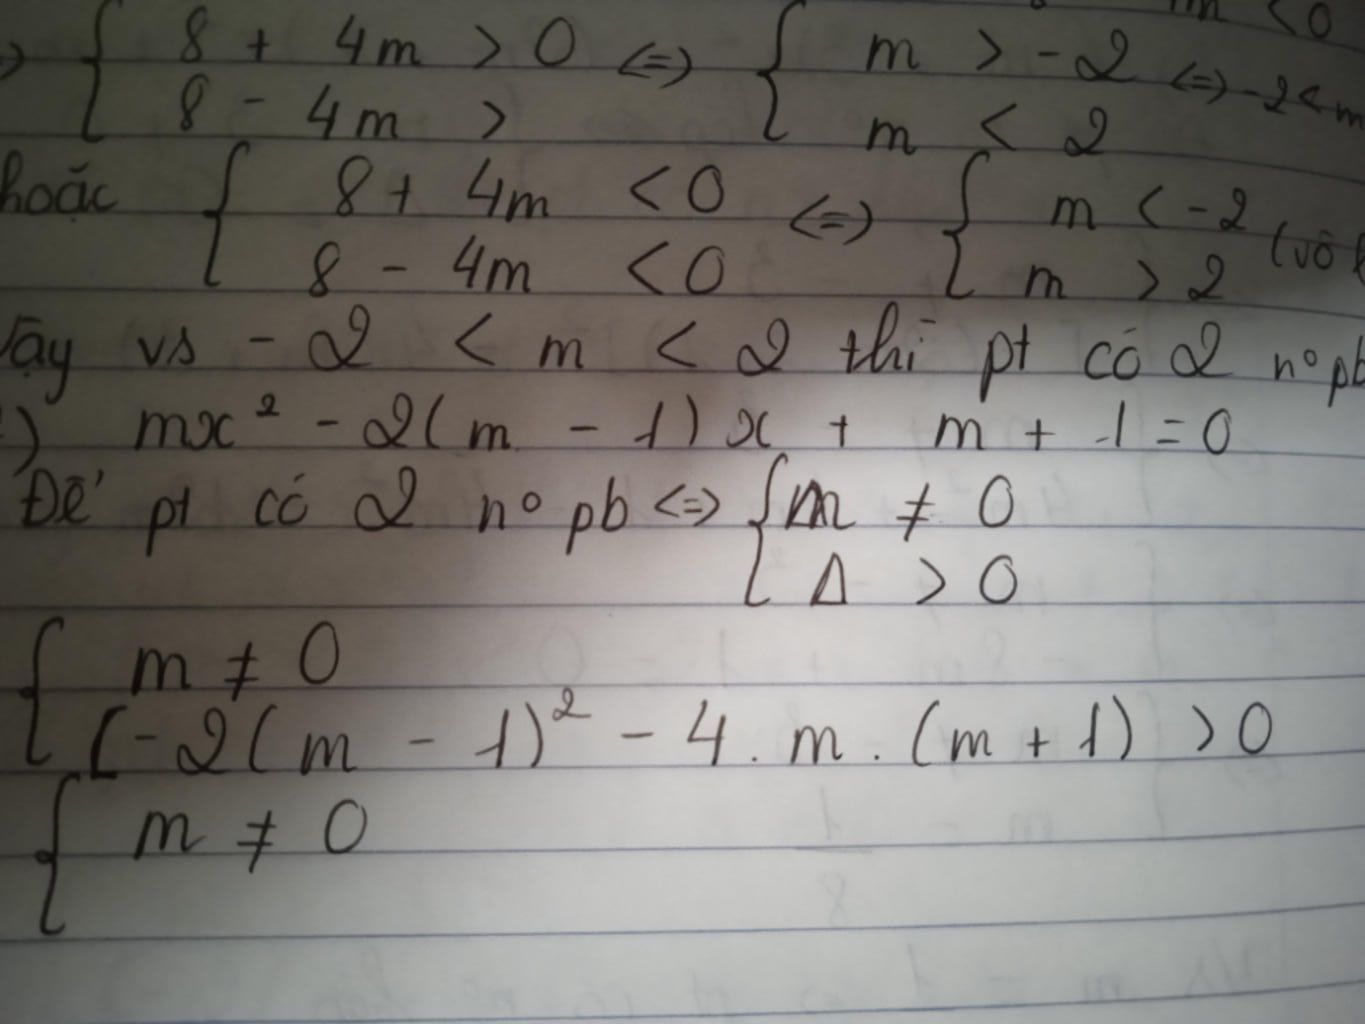 m < 0
{ 8 + 4m > 0 <=> { m > -2 <=> -2 < m
8 - 4m > m < 2
hoặc { 8 + 4m < 0 <=> { m < -2 (vô
8 - 4m < 0 m > 2
Vậy vs - 2 < m < 2 thì pt có 2 nº pb
) mx² - 2(m - 1)x + m + 1 = 0
Để pt có 2 nº pb <=> { m ≠ 0
Δ > 0
{ m ≠ 0
(-2(m - 1)² - 4 . m . (m + 1) > 0
{ m ≠ 0